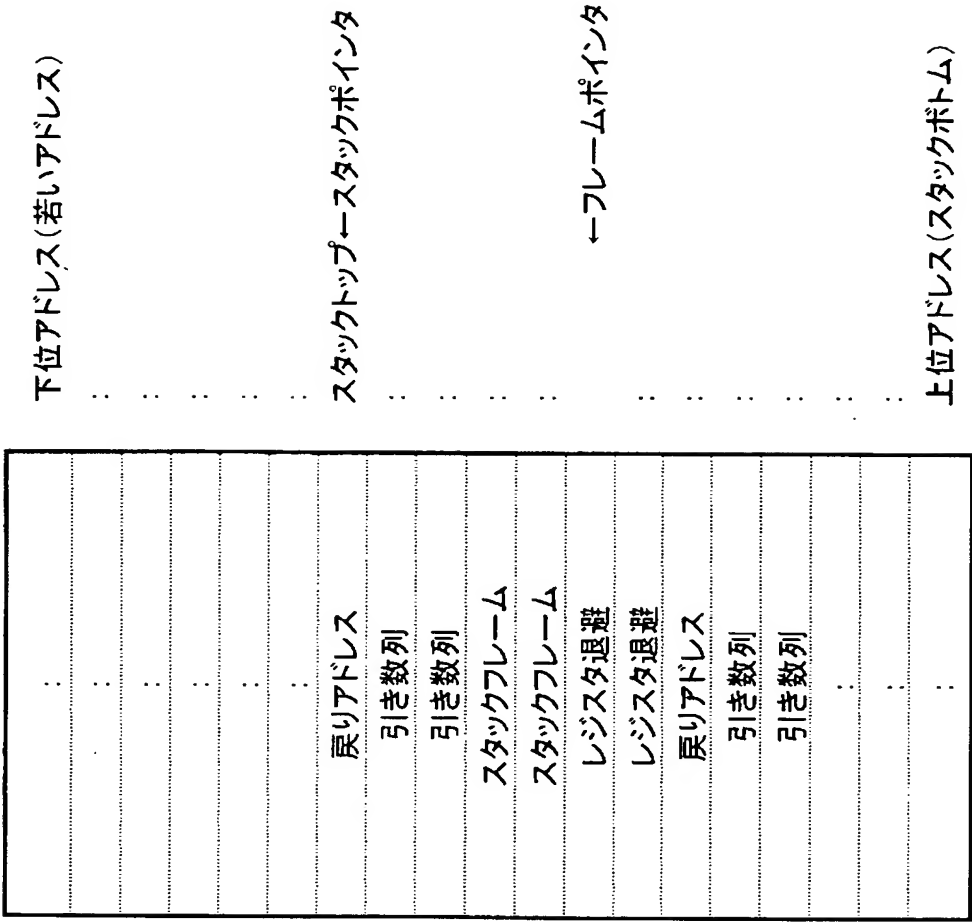 下位アドレス(若いアドレス)
：　：
：　：
：　：
：　：
：　：
戻りアドレス　スタックトップ←スタックポインタ
引き数列　：
引き数列　：
スタックフレーム　：
スタックフレーム　：
レジスタ退避　←フレームポインタ
レジスタ退避　：
戻りアドレス　：
引き数列　：
引き数列　：
：　：
：　：
：　上位アドレス(スタックボトム)